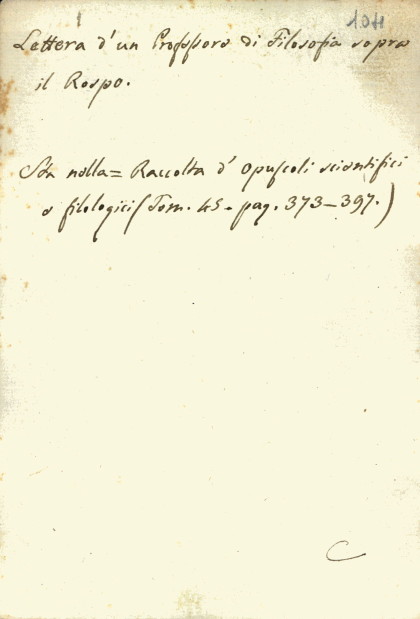 104
Lettera d'un Professore di Filosofia sopra
il Rospo.
Sta nella = Raccolta d' Opuscoli scientifici
e filologici (Tom. 45. pag. 373-397.)
C